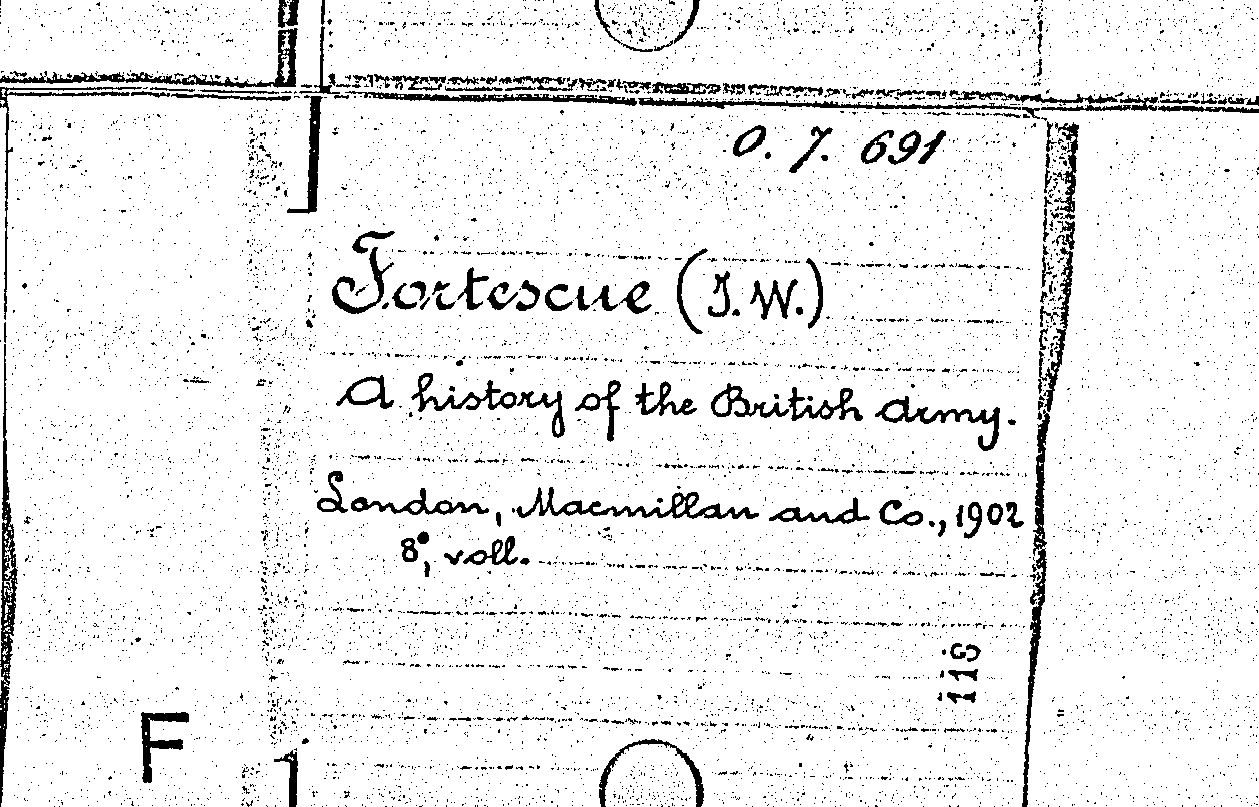 O. 7. 691
Fortescue (J.W.)
A history of the British Army.
London, Macmillan and Co., 1902
8°, voll.
F